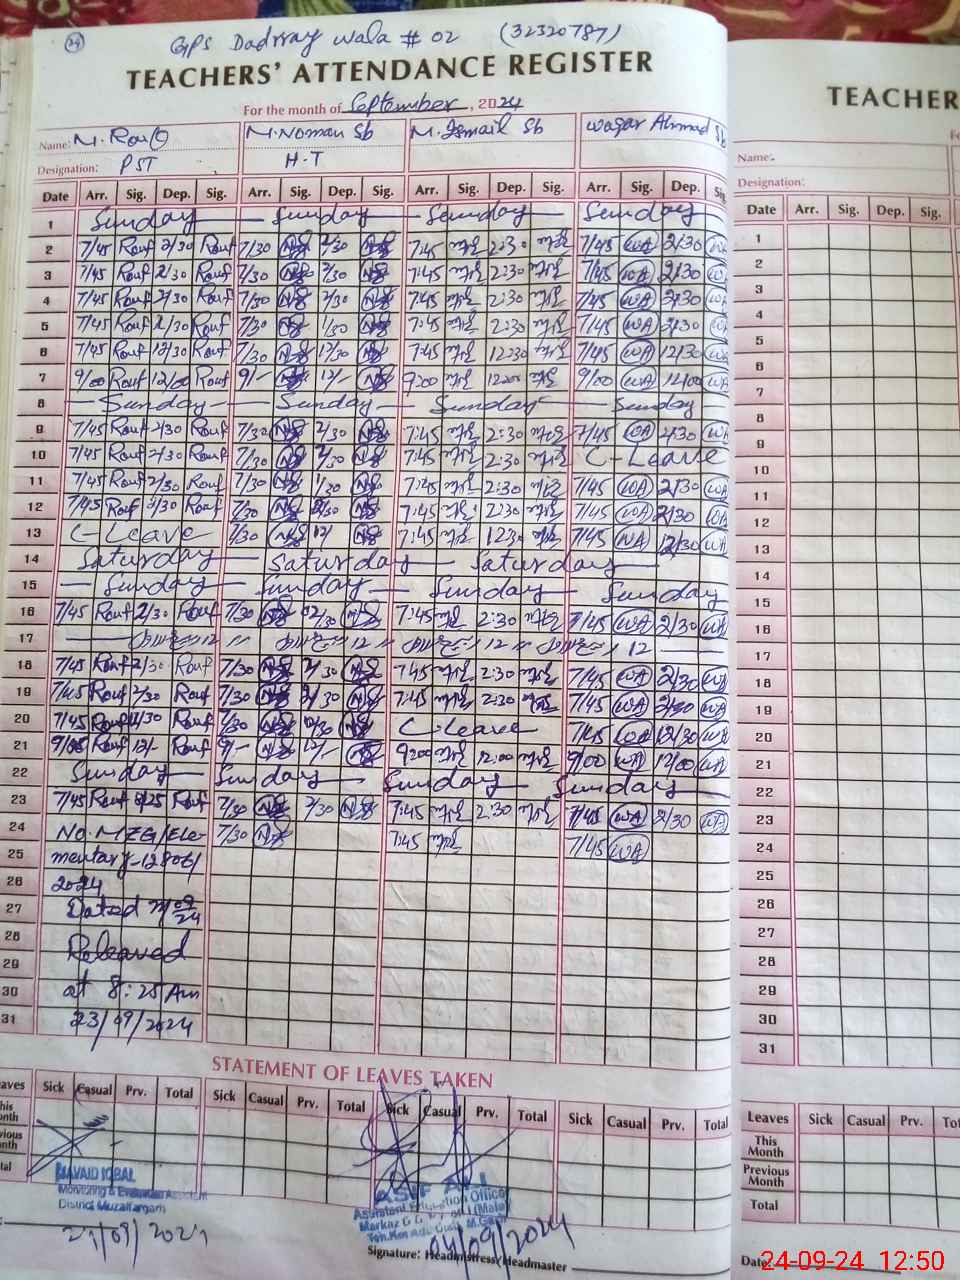 24
GPS Dadrray wala # 02 (32320787)
TEACHERS' ATTENDANCE REGISTER
For the month of September, 2024
Name: M. Rouf M. Noman Sb M. Ismail Sb Waqar Ahmad Sb
Designation: PST H.T
Date Arr. Sig. Dep. Sig. Arr. Sig. Dep. Sig. Arr. Sig. Dep. Sig. Arr. Sig. Dep. Sig
1 Sunday Sunday Sunday Sunday
2 7/45 Rouf 2/30 Rouf 7/30 2/30 7:45 2:30 7/45 WA 2/30 WA
3 7/45 Rouf 2/30 Rouf 7/30 2/30 7:45 2:30 7/45 WA 2/30 WA
4 7/45 Rouf 2/30 Rouf 7/30 2/30 7:45 2:30 7/45 WA 2/30 WA
5 7/45 Rouf 2/30 Rouf 7/30 1/30 7:45 2:30 7/45 WA 2/30 WA
6 7/45 Rouf 12/30 Rouf 7/30 12/30 7:45 12:30 7/45 WA 12/30 WA
7 9/00 Rouf 12/00 Rouf 9/- 12/- 9:00 12:00 9/00 WA 12/00 WA
8 Sunday Sunday Sunday Sunday
9 7/45 Rouf 2/30 Rouf 7/30 2/30 7:45 2:30 7/45 WA 2/30 WA
10 7/45 Rouf 2/30 Rouf 7/30 2/30 7:45 2:30 C-Leave
11 7/45 Rouf 2/30 Rouf 7/30 1/30 7:45 2:30 7/45 WA 2/30 WA
12 7/45 Rouf 2/30 Rouf 7/30 2/30 7:45 2:30 7/45 WA 2/30 WA
13 C-Leave 7/30 12/ 7:45 12:30 7/45 WA 12/30 WA
14 Saturday Saturday Saturday
15 Sunday Sunday Sunday Sunday
16 7/45 Rouf 2/30 Rouf 7/30 2/30 7:45 2:30 7/45 WA 2/30 WA
17 12 12 12 12
18 7/45 Rouf 2/30 Rouf 7/30 2/30 7:45 2:30 7/45 WA 2/30 WA
19 7/45 Rouf 2/30 Rouf 7/30 2/30 7:45 2:30 7/45 WA 2/30 WA
20 7/45 Rouf 12/30 Rouf 7/30 12/30 C-Leave 7/45 WA 12/30 WA
21 9/00 Rouf 12/- Rouf 9/- 12/- 9:00 12:00 9/00 WA 12/00 WA
22 Sunday Sunday Sunday Sunday
23 7/45 Rouf 8/25 Rouf 7/30 2/30 7:45 2:30 7/45 WA 2/30 WA
24 No. MZG/Ele- 7/30 7:45 7/45 WA
25 mentary-12806/
26 2024
27 Dated
28 Released
29
30 at 8:25 Am
31 23/09/2024
STATEMENT OF LEAVES TAKEN
eaves Sick Casual Prv. Total Sick Casual Prv. Total Sick Casual Prv. Total Sick Casual Prv. Total
This
onth
vious
onth
tal
NAVAID IQBAL
Monitoring & Evaluation Assistant
District Muzaffargarh
21/09/2024
ASIF ALI
Assistant Education Officer
(Male)
04/09/2024
Signature: Headmistress/Headmaster
TEACHER
Name:
Designation:
Date Arr. Sig. Dep. Sig.
1
2
3
4
5
6
7
8
9
10
11
12
13
14
15
16
17
18
19
20
21
22
23
24
25
26
27
28
29
30
31
Leaves Sick Casual Prv. Tot
This
Month
Previous
Month
Total
Date:
24-09-24 12:50